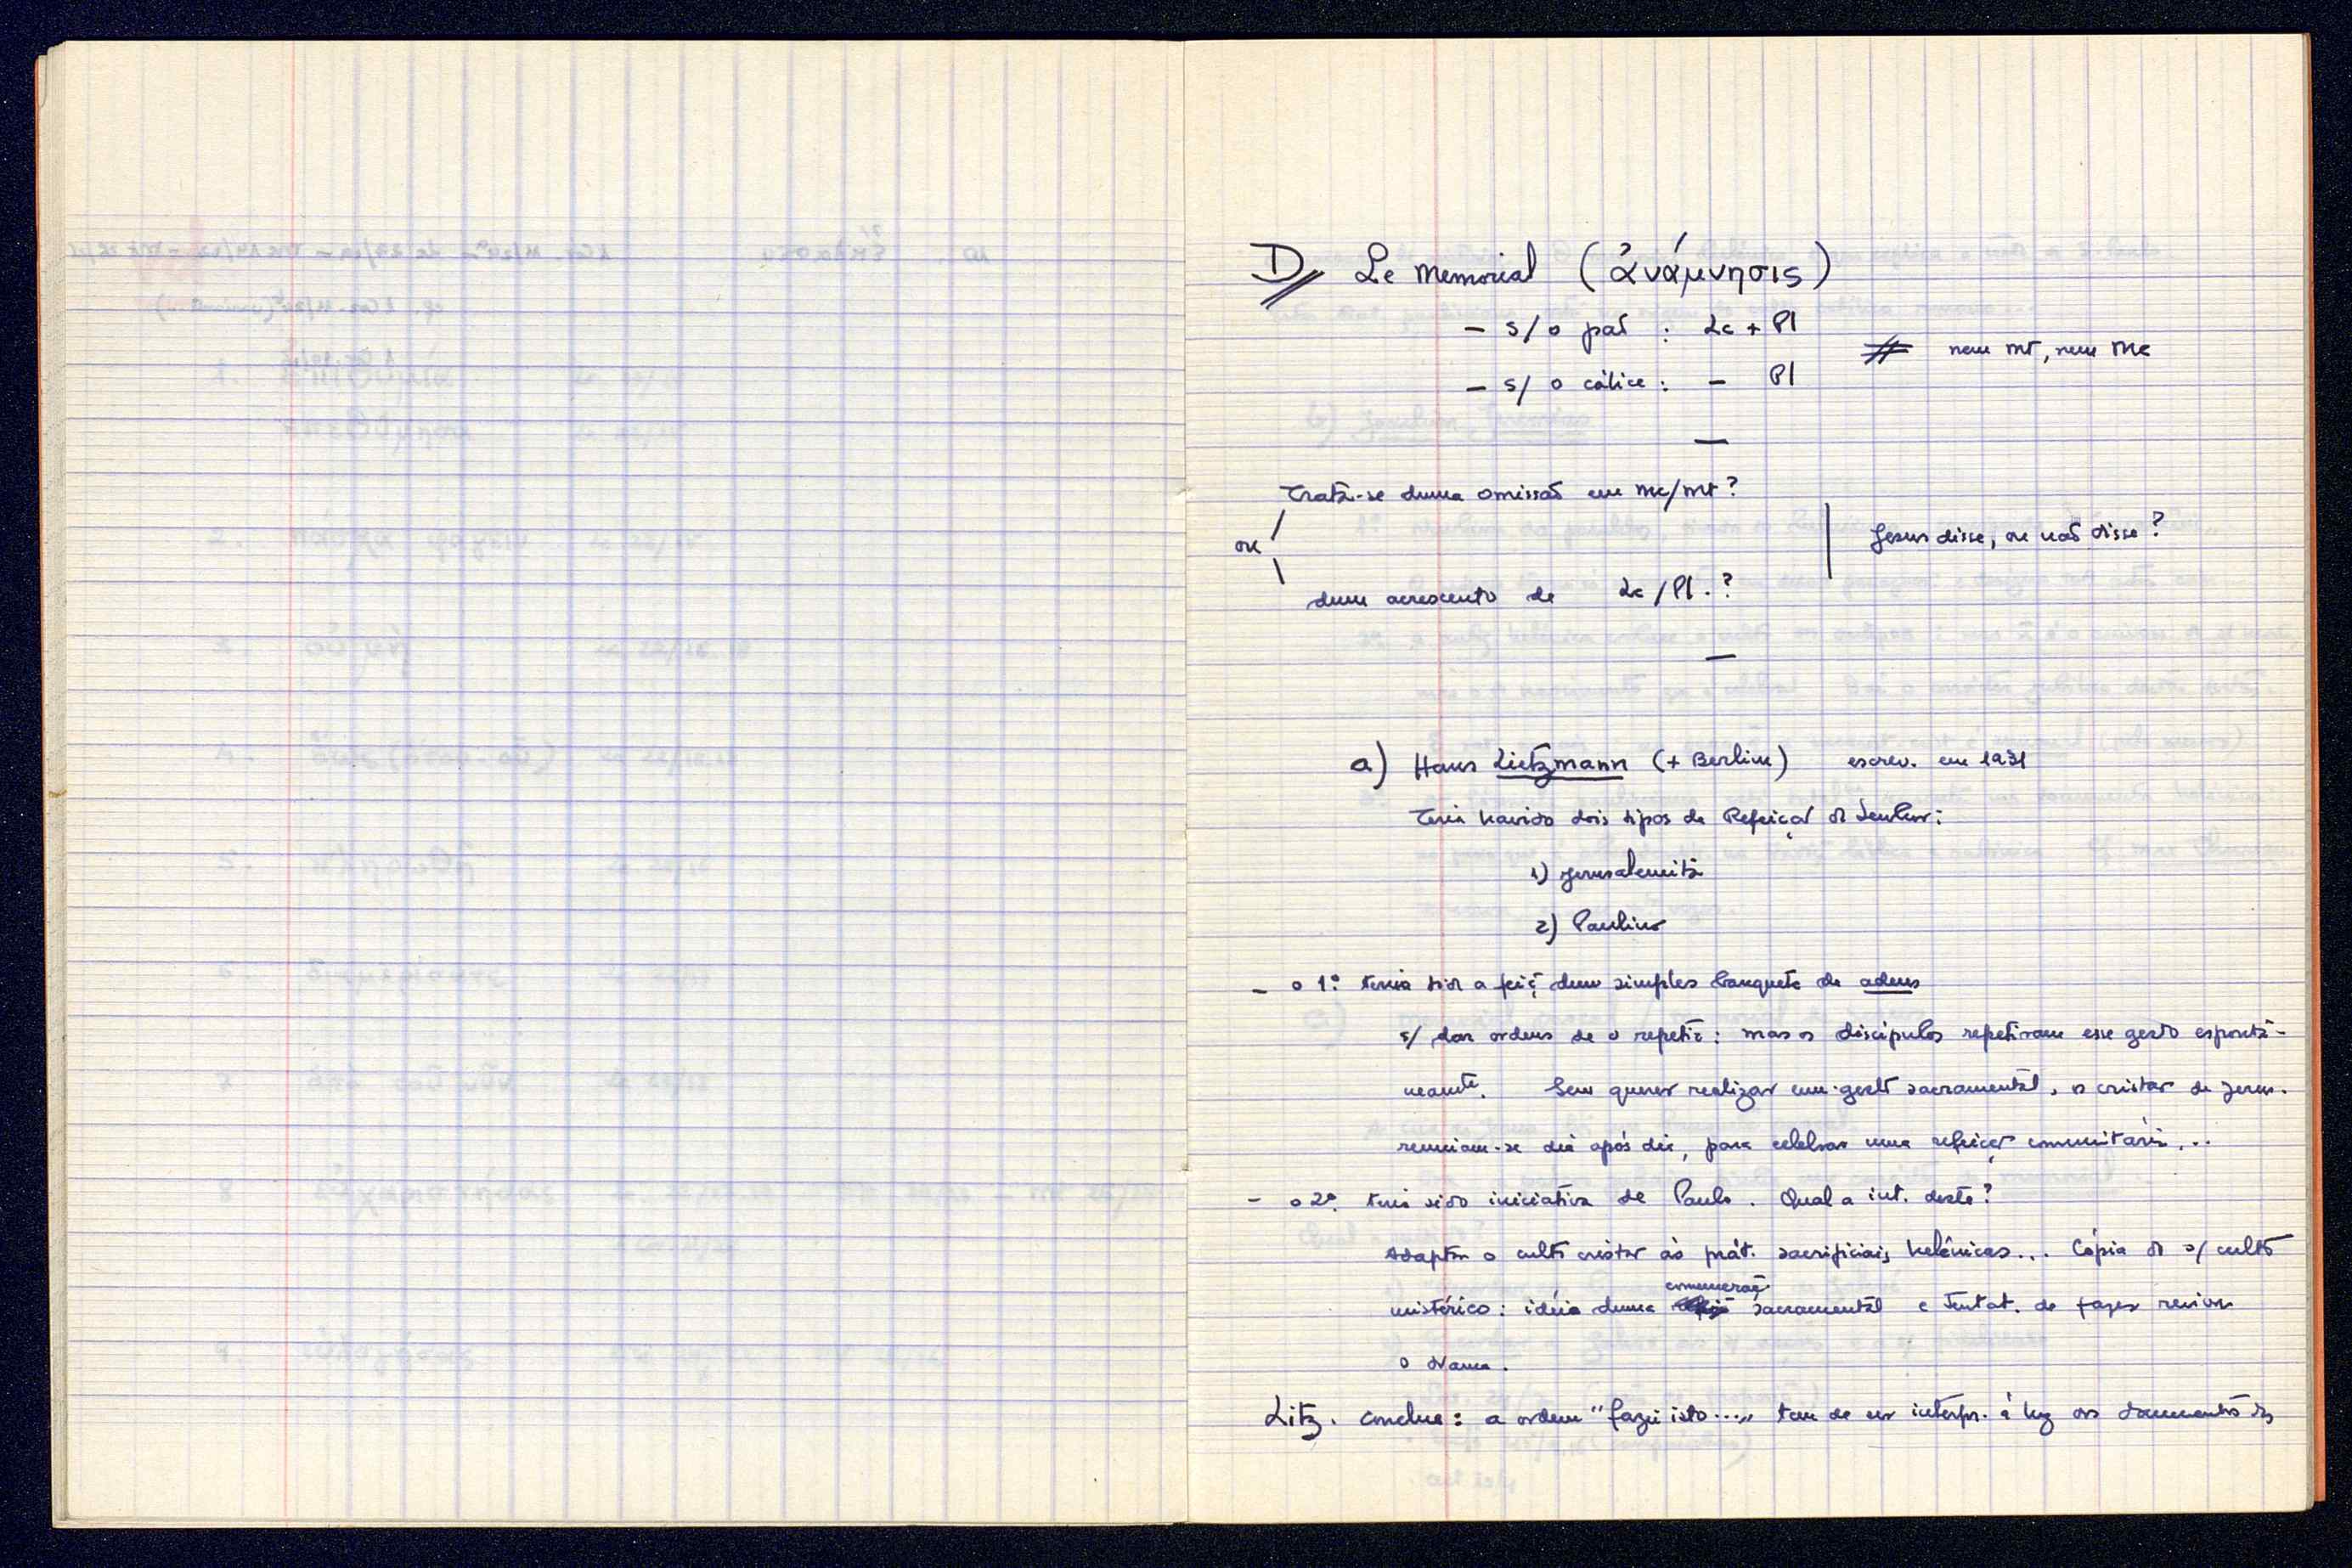 D Le Memorial (ἀνάμνησις)
- s/ o pão : Lc + Pl
≠ nem Mt, nem Mc
- s/ o cálice : - Pl
—
Trata-se duma omissão em Mc/Mt?
ou
Jesus disse, ou não disse?
dum acrescento de Lc/Pl.?
—
a) Hans Lietzmann (+ Berlim) escrev. em 1931
Teria havido dois tipos de Refeição do Senhor:
1) jerusalemita
2) Paulino
- o 1º teria sido a feiç. dum simples banquete de adeus
s/ dar ordens de o repetir: mas os discípulos repetiram esse gesto espontâ-
neamte. Sem querer realizar um gesto sacramental, os cristãos de Jerus.
reuniam-se dia após dia, para celebrar uma refeição comunitária...
- o 2º teria sido iniciativa de Paulo. Qual a int. deste?
Adaptar o culto cristão às prát. sacrificiais helénicas... Cópia do s/ culto
mistérico: ideia duma comemoraç. sacramental e tentat. de fazer reviver
o drama.
Litz. conclue: a ordem "fazei isto..." tem de ser interpr. à luz dos documentos